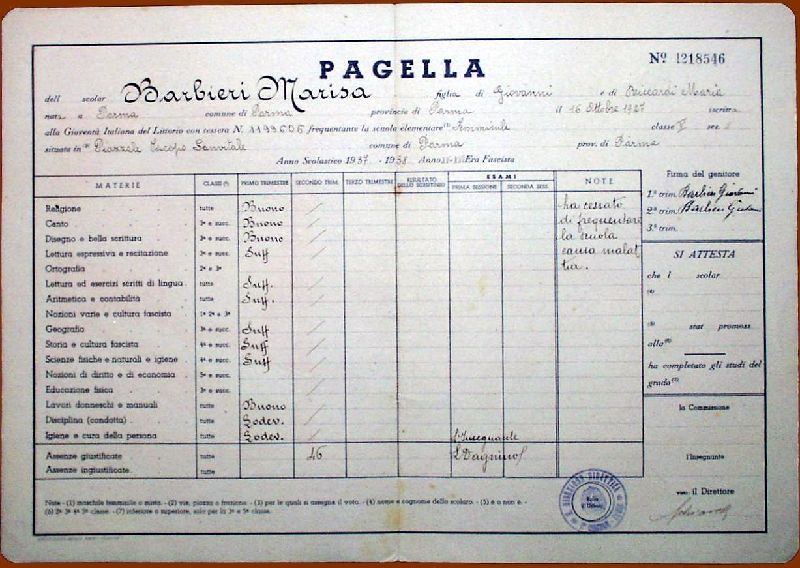 Nº 1218546
PAGELLA
dell scolar Barbieri Marisa figlia di Giovanni e di Riccardi Maria
nata a Parma comune di Parma provincia di Parma il 16 Ottobre 1927 iscritta
alla Gioventù Italiana del Littorio con tessera N. frequentante la scuola elementare classe V sez.
situata in Piazzale Sanvitale comune di Parma prov. di Parma
Anno Scolastico 1937 - 1938 Anno Era Fascista
MATERIE CLASSE (³) PRIMO TRIMESTRE SECONDO TRIM. TERZO TRIMESTRE RISULTATO DELLO SCRUTINIO ESAMI PRIMA SESSIONE SECONDA SESS. NOTE
Religione tutte Buono
Canto 3ª e succ. Buono
Disegno e bella scrittura 3ª e succ. Buono
Lettura espressiva e recitazione 3ª e succ. Suff
Ortografia 2ª e 3ª
Lettura ed esercizi scritti di lingua tutte Suff.
Aritmetica e contabilità tutte Suff.
Nozioni varie e cultura fascista 1ª 2ª e 3ª
Geografia 3ª e succ. Suff
Storia e cultura fascista 4ª e succ. Suff
Scienze fisiche e naturali e igiene 4ª e succ. Suff
Nozioni di diritto e di economia 5ª e succ.
Educazione fisica
Lavori donneschi e manuali tutte Buono
Disciplina (condotta) tutte Lodev.
Igiene e cura della persona tutte Lodev.
Assenze giustificate tutte 46
Assenze ingiustificate tutte
L'Insegnante
ha cessato
di frequentare
la scuola
causa malat
tia.
Firma del genitore
1.º trim. Barbieri Giovanni
2.º trim. Barbieri
3.º trim.
SI ATTESTA
che l scolar
(4)
(5) stat promoss
alla (6)
ha completato gli studi del
grado (7)
la Commissione
l'Insegnante
visto: il Direttore
Note - (1) maschile femminile o mista. - (2) via, piazza o frazione. - (3) per le quali si assegna il voto. - (4) nome e cognome dello scolaro. - (5) è o non è. -
(6) 2ª 3ª 4ª 5ª classe. - (7) inferiore o superiore, solo per la 3ª e 5ª classe.